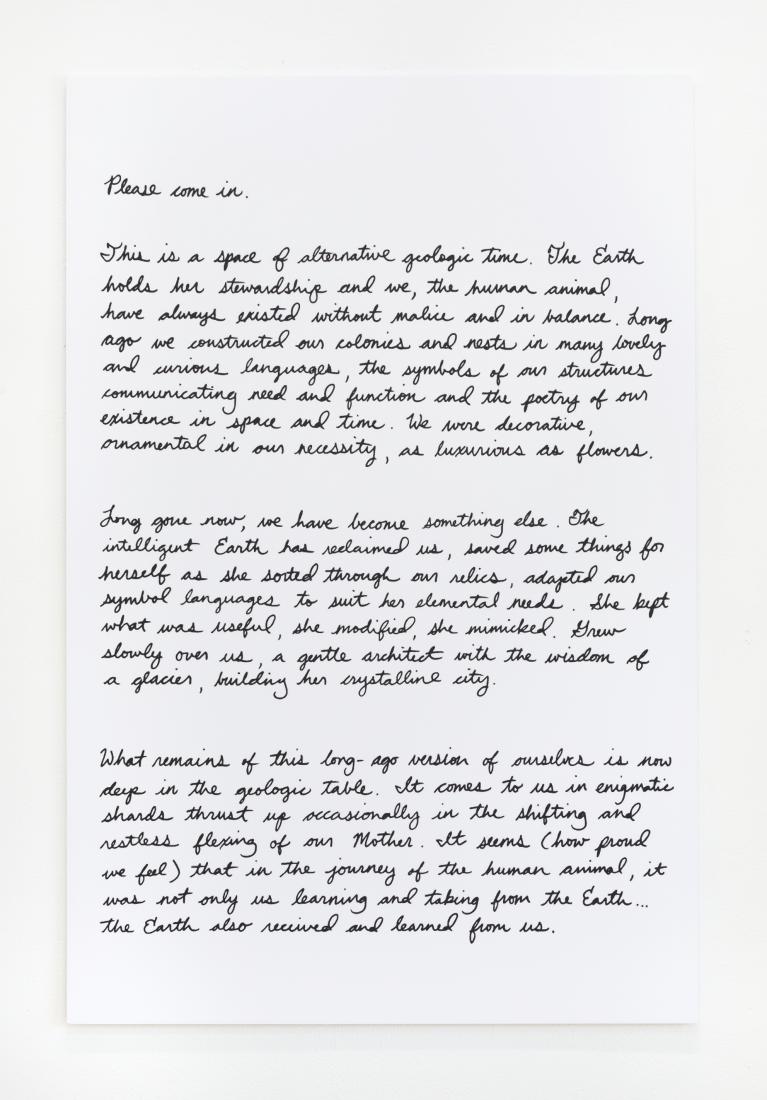 Please come in.
This is a space of alternative geologic time. The Earth
holds her stewardship and we, the human animal,
have always existed without malice and in balance. Long
ago we constructed our colonies and nests in many lovely
and curious languages, the symbols of our structures
communicating need and function and the poetry of our
existence in space and time. We were decorative,
ornamental in our necessity, as luxurious as flowers.
Long gone now, we have become something else. The
intelligent Earth has reclaimed us, saved some things for
herself as she sorted through our relics, adapted our
symbol languages to suit her elemental needs. She kept
what was useful, she modified, she mimicked. Grew
slowly over us, a gentle architect with the wisdom of
a glacier, building her crystalline city.
What remains of this long-ago version of ourselves is now
deep in the geologic table. It comes to us in enigmatic
shards thrust up occasionally in the shifting and
restless flexing of our Mother. It seems (how proud
we feel) that in the journey of the human animal, it
was not only us learning and taking from the Earth...
the Earth also received and learned from us.